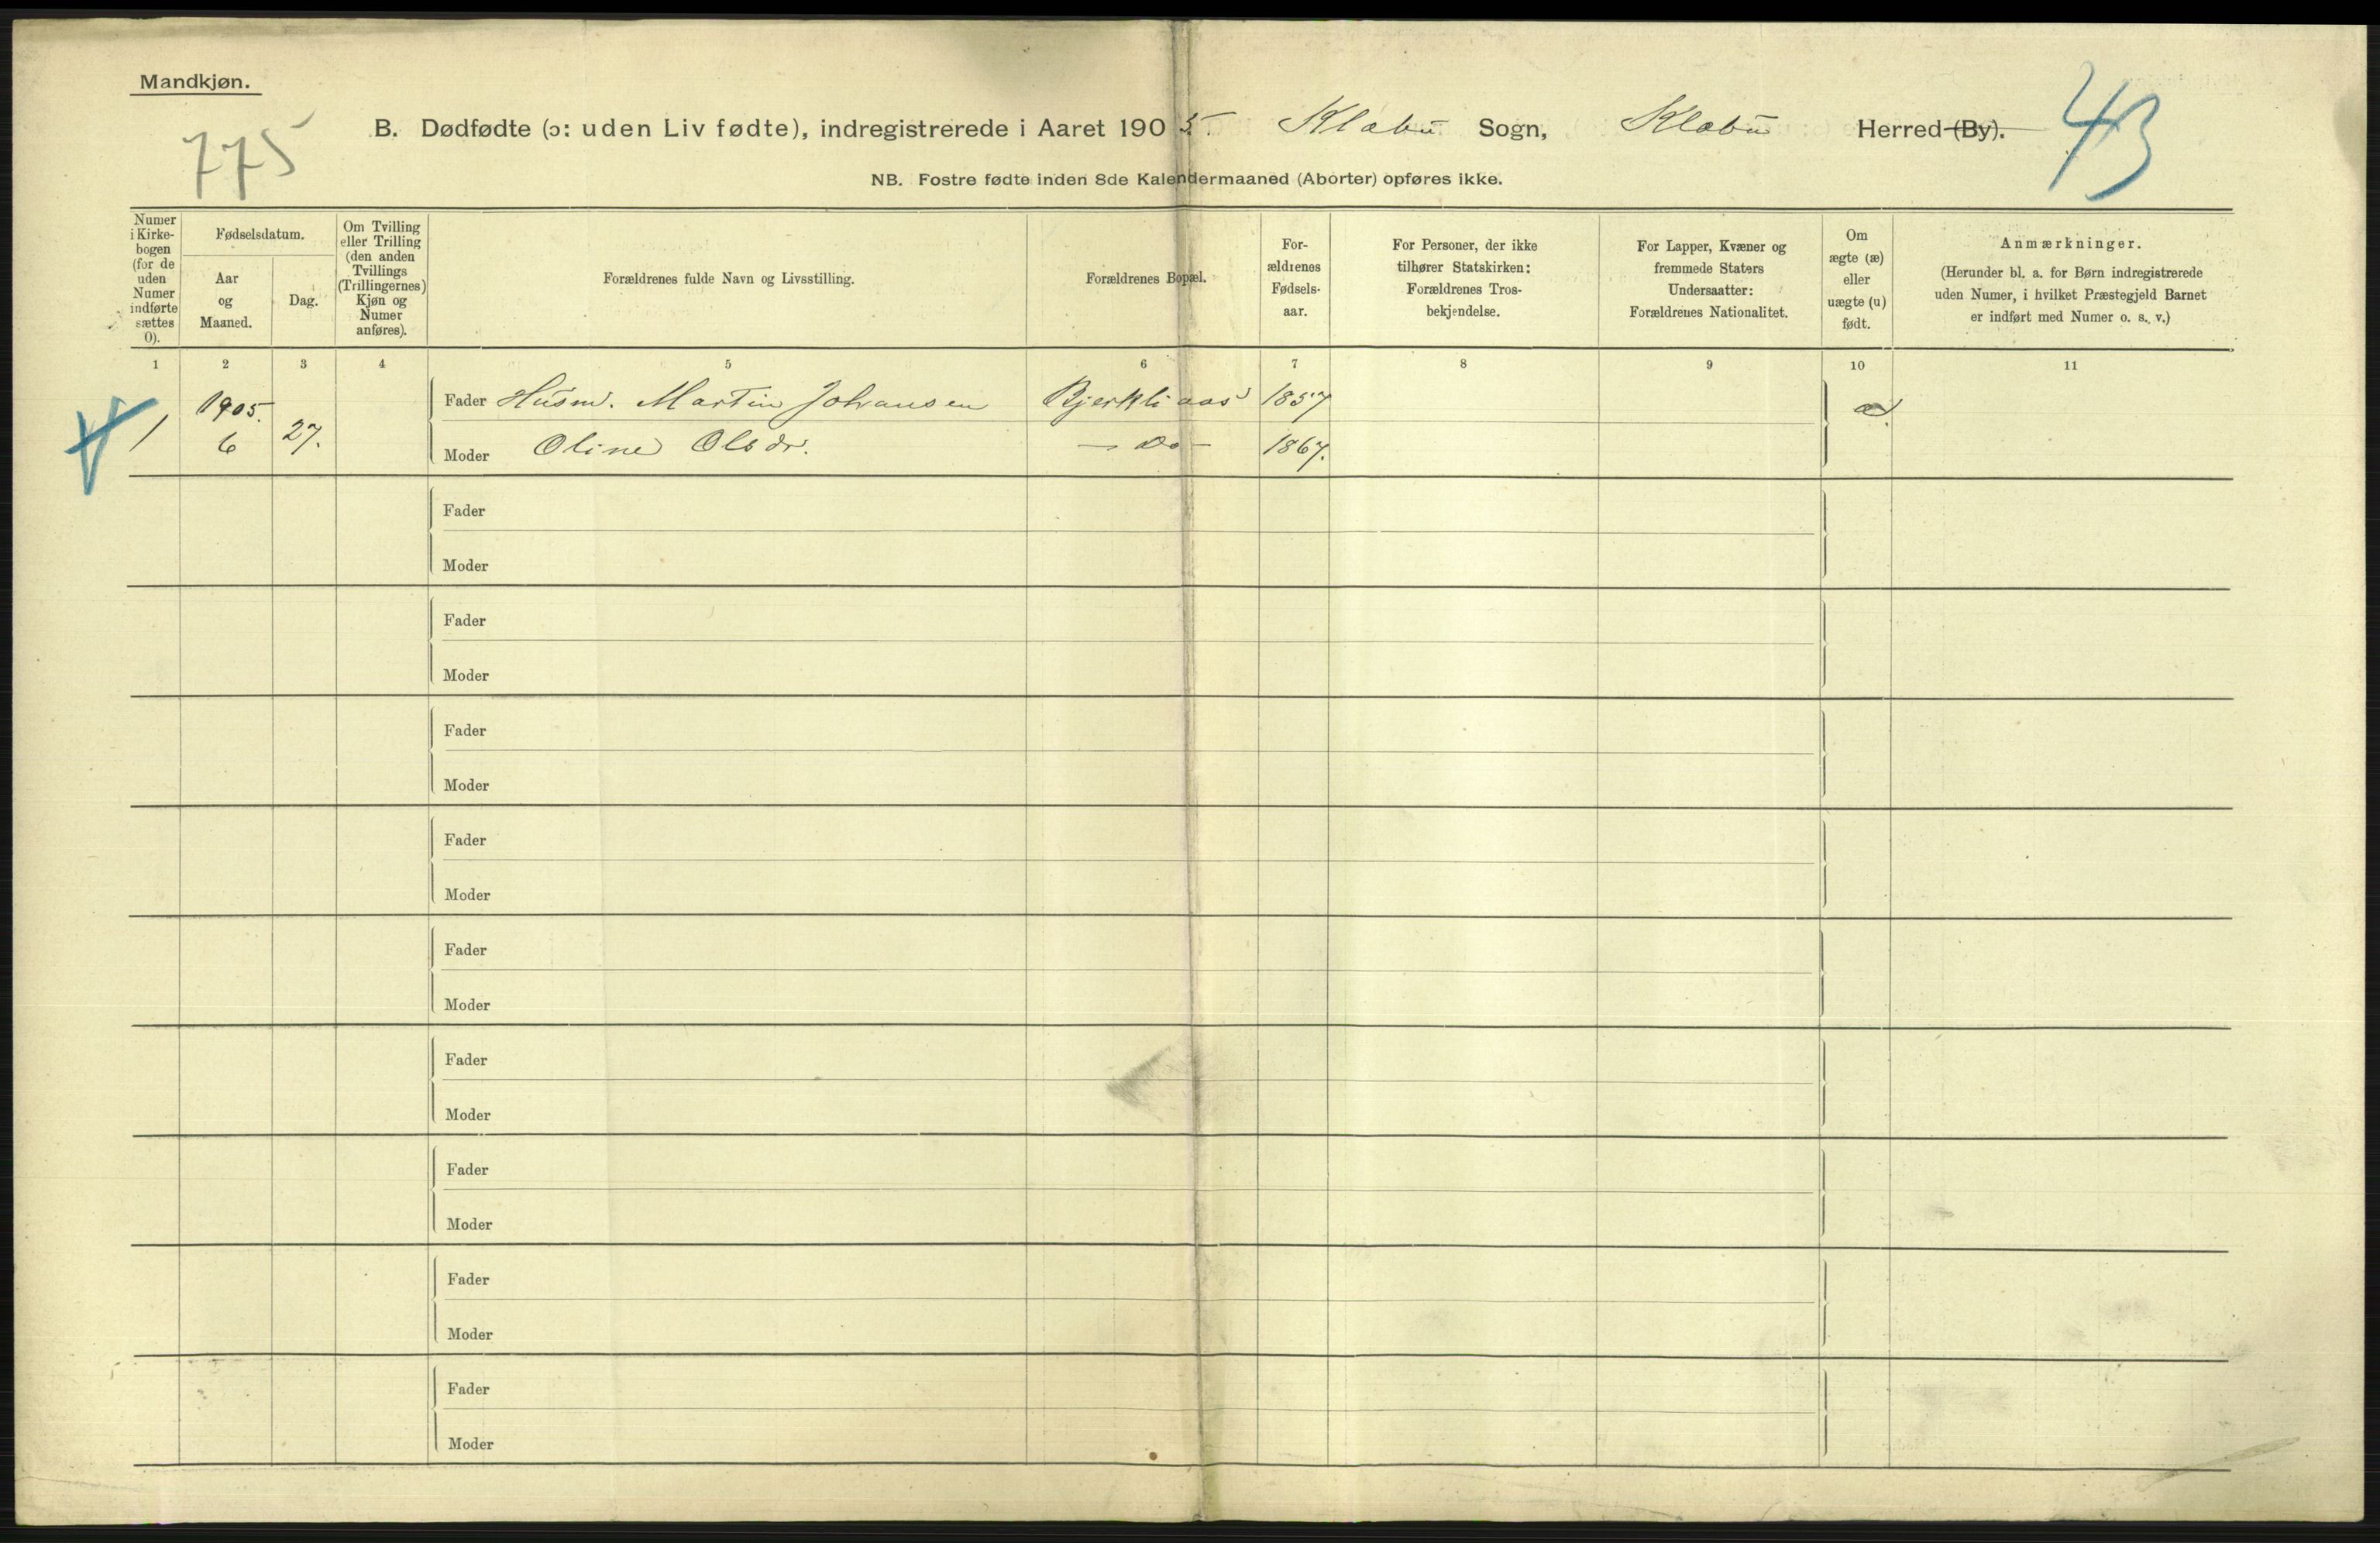 Mandkjøn.
775
B. Dødfødte (ɔ: uden Liv fødte), indregistrerede i Aaret 1905. Klæbu Sogn, Klæbu Herred (By).
43
NB. Fostre fødte inden 8de Kalendermaaned (Aborter) opføres ikke.
Numer i Kirke-bogen (for de uden Numer indførte sættes 0).
Fødselsdatum.
Aar og Maaned.
Dag.
Om Tvilling eller Trilling (den anden Tvillings (Trillingernes) Kjøn og Numer anføres).
Forældrenes fulde Navn og Livsstilling.
Forældrenes Bopæl.
For-ældrenes Fødsels-aar.
For Personer, der ikke tilhører Statskirken: Forældrenes Tros-bekjendelse.
For Lapper, Kvæner og fremmede Staters Undersaatter: Forældrenes Nationalitet.
Om ægte (æ) eller uægte (u) født.
Anmærkninger.
(Herunder bl. a. for Børn indregistrerede uden Numer, i hvilket Præstegjeld Barnet er indført med Numer o. s. v.)
1 2 3 4 5 6 7 8 9 10 11
1905. Fader Husm. Martin Johansen Bjerkliaas 1857 æ.
1 6 27. Moder Oline Olsdr. — Do — 1867.
Fader
Moder
Fader
Moder
Fader
Moder
Fader
Moder
Fader
Moder
Fader
Moder
Fader
Moder
Fader
Moder
Fader
Moder